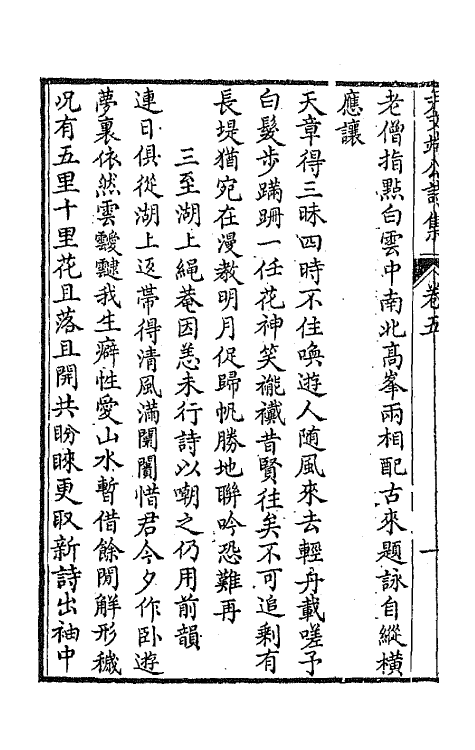 文端公詩集 卷五 一
老僧指點白雲中南北高峯兩相配古來題詠自縱橫
應讓
天章得三昧四時不住喚遊人随風來去輕舟載嗟予
白髮步蹣跚一任花神笑襤襶昔賢往矣不可追剩有
長堤猶宛在漫教明月促歸帆勝地聯吟恐難再
三至湖上繩菴因恙未行詩以嘲之仍用前韻
連日俱從湖上返帶得清風滿闤闠惜君今夕作卧遊
夢裏依然雲靉靆我生癖性愛山水暫借餘閒解形穢
况有五里十里花且落且開共盼睞更取新詩出袖中